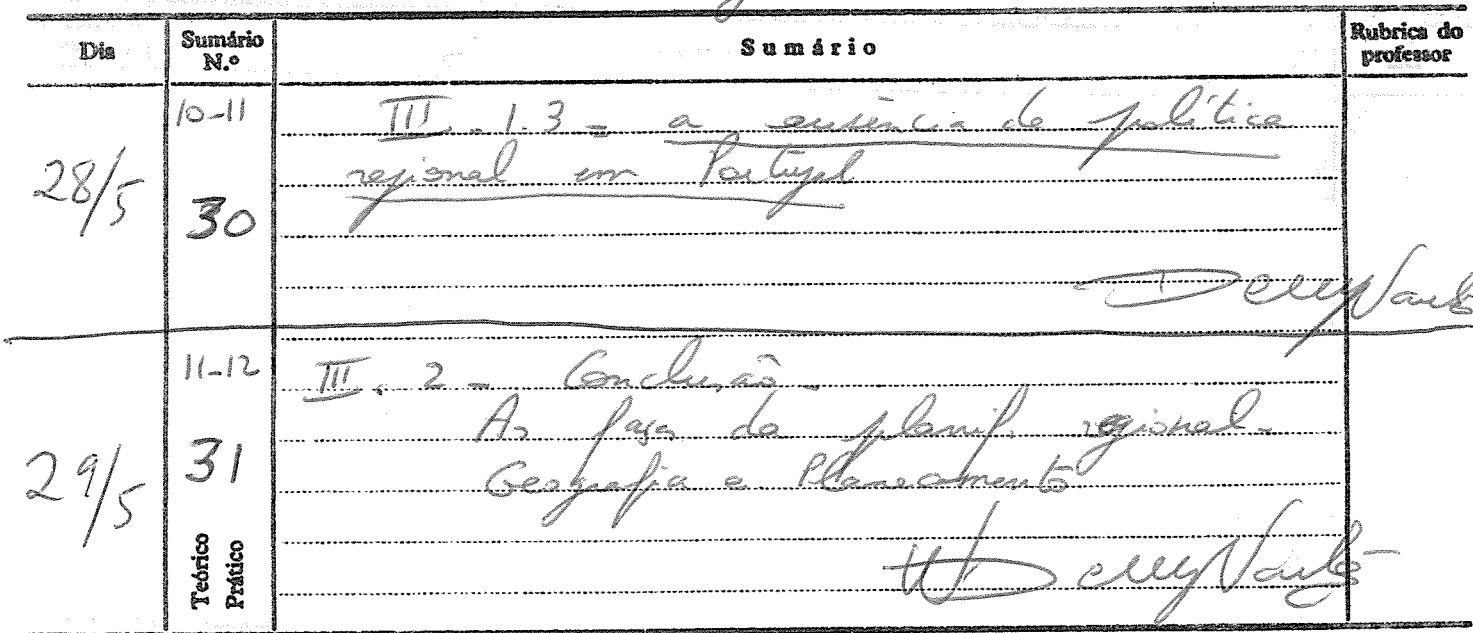 Dia
Sumário N.º
Sumário
Rubrica do professor
28/5
10-11
30
III. 1.3 - a ausência de política
regional em Portugal
29/5
11-12
31
Teórico
Prático
III. 2 - Conclusão.
As fases da planif. regional.
Geografia e Planeamento